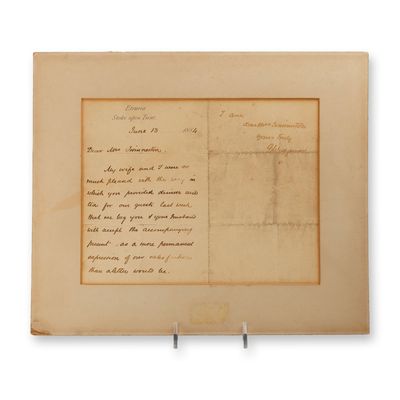 Etruria
Stoke upon Trent.
June 13 1894
Dear Mrs
My wife and I were so
much pleased with the way in
which you provided dinner and
tea for our guests last week
that we beg you & your Husband
will accept the accompanying
present as a more permanent
expression of our satisfaction
than a letter would be.
I am
dear Mrs
yours truly